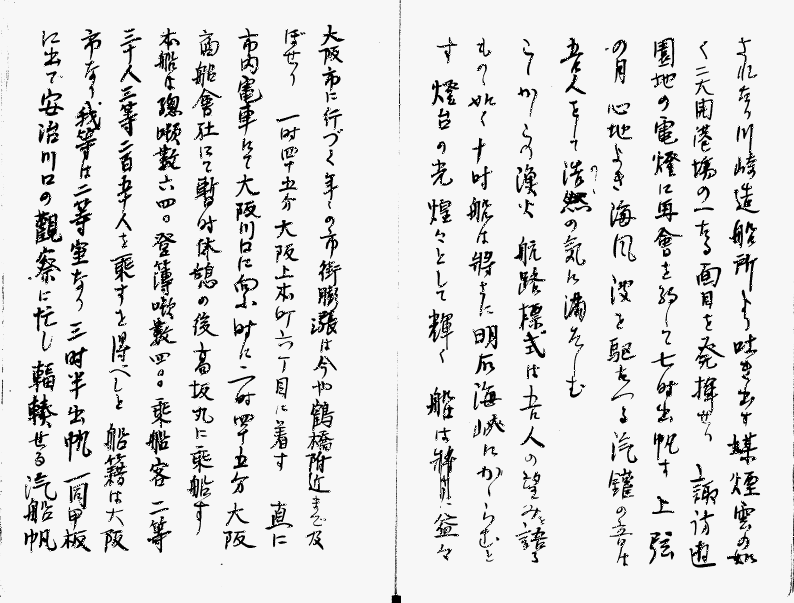 されたり川崎造船所より吐き出す煤煙雲の如
く二大開港場の一なる面目を発揮せり 諏訪遊
園地の電燈に再會を約して七時出帆す 上弦
の月 心地よき海風 波を駆る汽鑵の音は
吾人をして浩然の気に満たしむ
こゝかしこの漁火 航路標式は吾人の望みを語る
もの如く 十時船は將さに明石海峡にかゝらむと
す 燈台の光煌々として輝く 船は益々
大阪市に行づく年々の市街膨漲は今や鶴橋附近まで及
ぼせり 一时四十五分 大阪上本町六丁目に着す 直に
市内電車にて大阪川口に向ふ 时に二时四十五分 大阪
商船會社にて暫时休憩の後高坂丸に乗船す
本船は總噸数六四〇 登簿噸数四〇〇 乗船客 二等
三十人三等二百五十人を乗すを得べしと 船籍は大阪
市なり 我等は二等室なり 三时半出帆 一同甲板
に出で安治川口の觀察に忙し 輻輳せる汽船帆